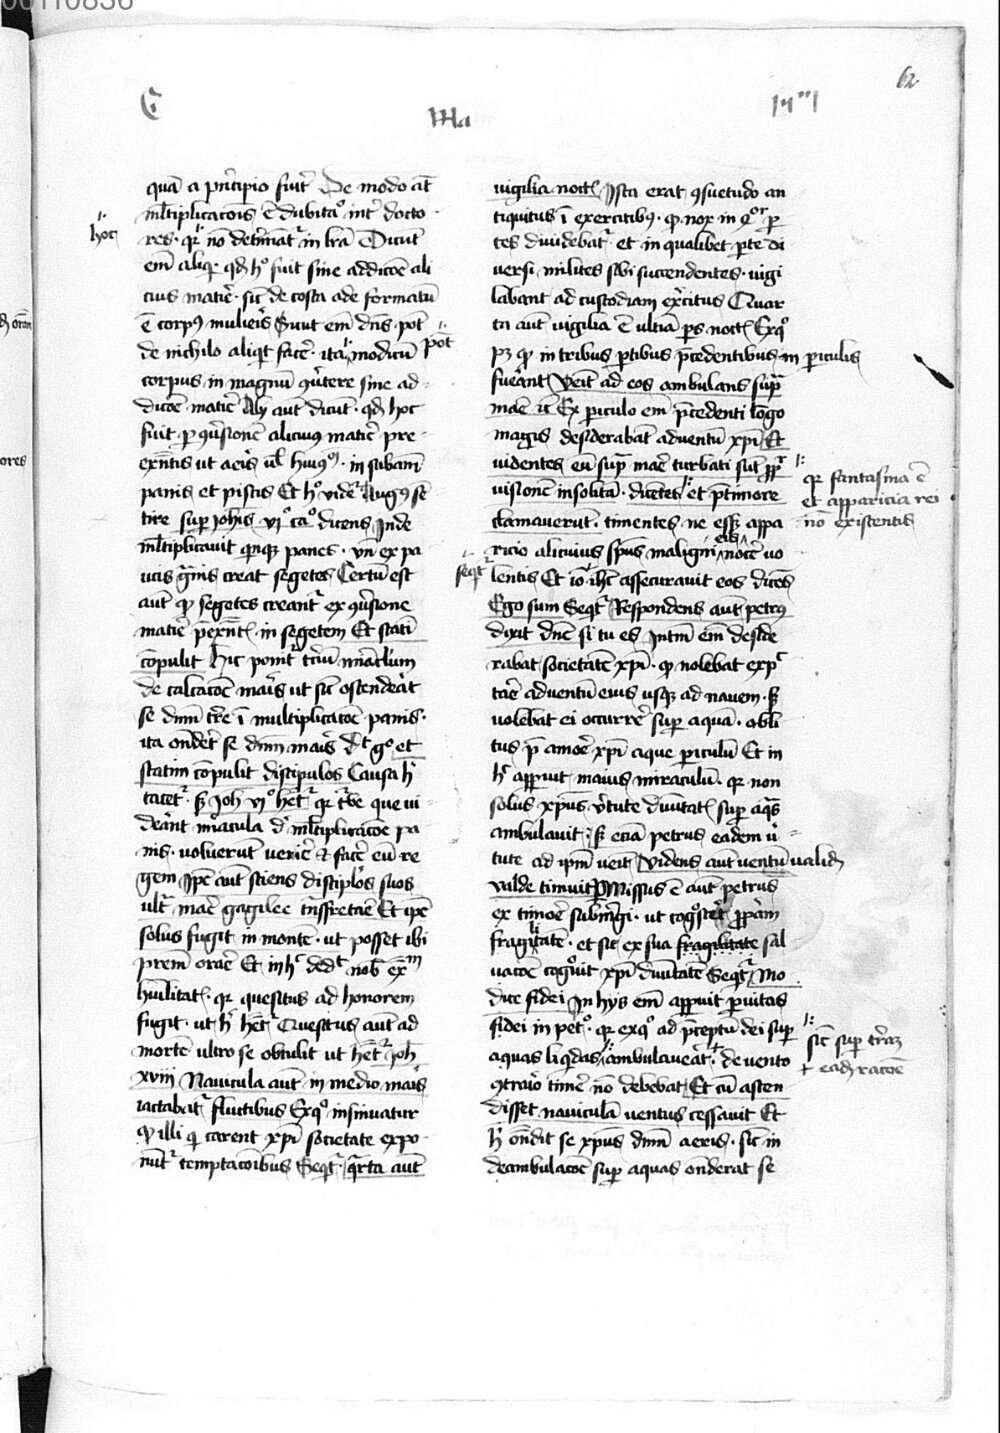 00110836
62
Ma
quā a pͥncipio fuit᷑ De modo at̄
ml̄tiplicacōis ē dubitaᵒ int᷑ docto
res · qͥ nō det᷑mīat᷑ in lr̄a Dicūt
hoc
em̄ aliqͥ · qd̄ hᵒ fuit sine addicōe ali
cius matīe · sic̄ de costa ade formatū
ē corpꝰ mulieris Sicut em̄ dn̄s pot̄
de nichilo aliqͥd facē · ita modicū
pōt
corpus in magnū ꝯūtere sine ad
dicōe matīe Alij aut̄ dicūt · qd̄ hoc
fuit ꝑ ꝯūsionē alicuiꝰ matīe pre
exn̄tis ut aeris ul̄ huiꝰᵒⁱ · in sub̄am
panis et piscis Et hᵒ vidēt᷑ Augꝰ sē
tire suꝑ johis vjᵒ caᵒ dicens Inde
ml̄tiplicauit qͥnqꝫ panes · vn̄ ex pa
ucis gͣnis creat segetes Certū est
aut̄ ꝙ segetes creant᷑ ex ꝯūsione
matīe p̄exn̄tͥ · in segetem Et statī
cōpulit Hic ponit᷑ t᷑ciū mͥacl'um
de calcacōe maris ut sic̄ ostendeͣt
se dn̄m tr̄e ī multiplicacōe panis ·
ita ondēt᷑ se dn̄m maris dͭ gᵒ et
statim cōpulit discipulos Causa hͥ
tacet᷑ · sꝫ joh̄ vjᵒ hēt᷑ qͥ tᷓbe que vi
deͣnt mͥacula dͤ ml̄tiplicacōe pa
nis · voluerūt venīe ⁊ facē eū re
gem Ip̄e aut̄ sciens discipl'os suos
ult᷑ mar̄e gagilee tͣnsfretar̄e Et ip̄e
solus fugit in montē · ut posset ibi
orar̄e Et in hͥ dedͭ nob̄ exᵐ
hūilitatͥ · qͥ quesitus ad honorem
fugit · ut hͥ hēt᷑ Quesitus aut̄ ad
mortē ultro se obtulit ut hēt᷑ joh̄
xviij Nauicula aut̄ in medio maris
iactabat᷑ fluctibus Exqᵒ insinuatur
ꝙ illi qͥ carent xp̄i societate expo
nūt᷑ temptacōibus Seqͥt᷑ qͣrta aut̄
vigilia noctͥ Ista erat ꝯsuetudo an
tiquitus ī exercitibꝰ · ꝙ nox in qͦᵒʳ ꝑ
tes diuidebat᷑ · et in qualibet ꝑte di
versi milites sibi succendentes · vigi
labant ad custodiam ex᷑citus Quar
ta aut̄ vigilia ē ultīa ꝑs noctͥ Exqᵒ
pꝫ ꝙ in tribus ꝑtibus p̄cedentibus in periculis
fueͣnt Venit ad eos ambulans supͣ
mar̄e ⁊c Ex ꝑiculo em̄ p̄cedenti lōgo
magis desiderabāt aduentū xp̄i Et
videntes eū supͣ mar̄e turbati sūt
visionē insolitā · dicētes et p̄timore
qͥ fantasma ē
et apparicia rei
nō existentis
clamauerūt · timentes ne appa
ricio alicuius sp̄us maligni nocē vo
eis
lentis Et iō ih̄c assecurauit eos dicēs
seqͥt᷑
Ego sum Seqͥt᷑ Respondens aut̄ petrꝰ
dixit dn̄e si tu es Intm̄ em̄ deside
rabat societatē xp̄i · ꝙ nolebat expͨ
tar̄e aduentū eius usqꝫ ad nauem · sꝫ
volebat ei occurr̄e suꝑ aquā · obli
tus p̄ amor̄e xp̄i aque ꝑiculū Et in
hͥ apparuit maius miraculū · qͥ non
solus xp̄us v᷑tute diuītatͥ suꝑ aqͣs
ambulauit · sꝫ eciā petrus eadem v᷑
tute ad ip̄m venit Videns aut̄ ventū validū
valde timuit Ꝑmissus ē aut̄ petrus
ex timor̄e submͥgi · ut cogᵒscēt᷑ ꝓpͥam
fragilitatē · et sic ex sua fragilitate sal
uacōe cogᵒuit xp̄i diuītatē Seqͥt᷑ Mo
dice fidei In hijs em̄ apparuit ꝑuitas
fidei in petᵒ · qͥ exqᵒ ad p̄ceptū dei suꝑ
aquas liqͥdas ambulaueͣt · de vento
sic̄ suꝑ tr̄am
+ eadē racōe
ꝯtraͥo timē nō debebat Et cū ascen
disset nauiculā ventus cessauit Et
hͥ ondīt se xp̄us dn̄m aeris · sic̄ in
deambulacōe suꝑ aquas onderat se